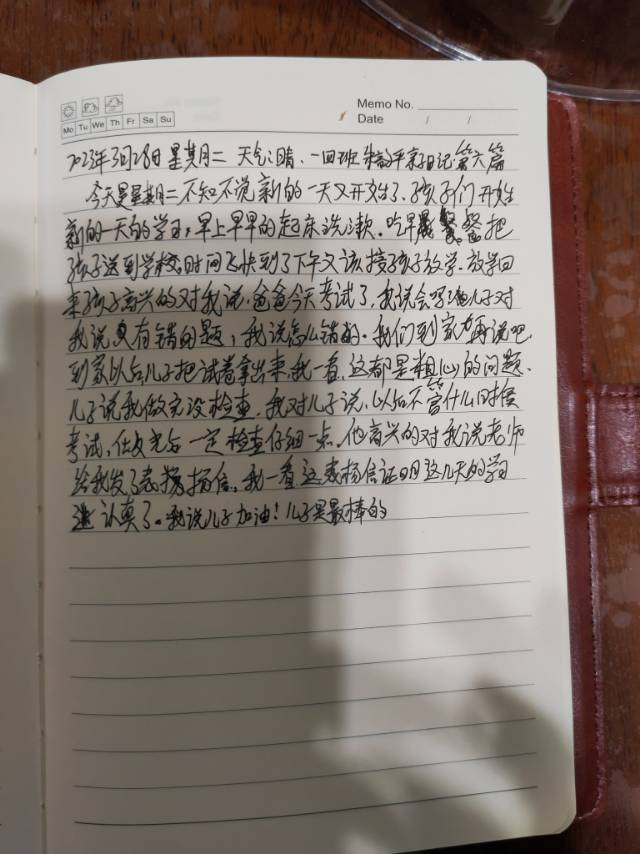 Memo No.
Mo Tu We Th Fr Sa Su
Date / /
2023年3月28日 星期二 天气:晴、一四班 平亲子日记第六篇
今天是星期二不知不说新的一天又开始了、孩子们开始
新的一天的学习,早上早早的起床洗漱。吃早餐把
孩子送到学校。时间飞快到了下午又该接孩子放学、放学回
来孩子高兴的对我说,爸爸今天考试了,我说会吗儿子对
我说有错的题,我说怎么错的、我们到家再说吧
到家以后儿子把试卷拿出来我一看、这都是粗心的问题、
儿子说我做完没检查,我对儿子说,以后不管什么时候
考试,做完与一定检查仔细一点、他高兴的对我说老师
给我发了表扬信、我一看这表扬信证明这几天的学习
认真了。我说儿子加油!儿子是最棒的